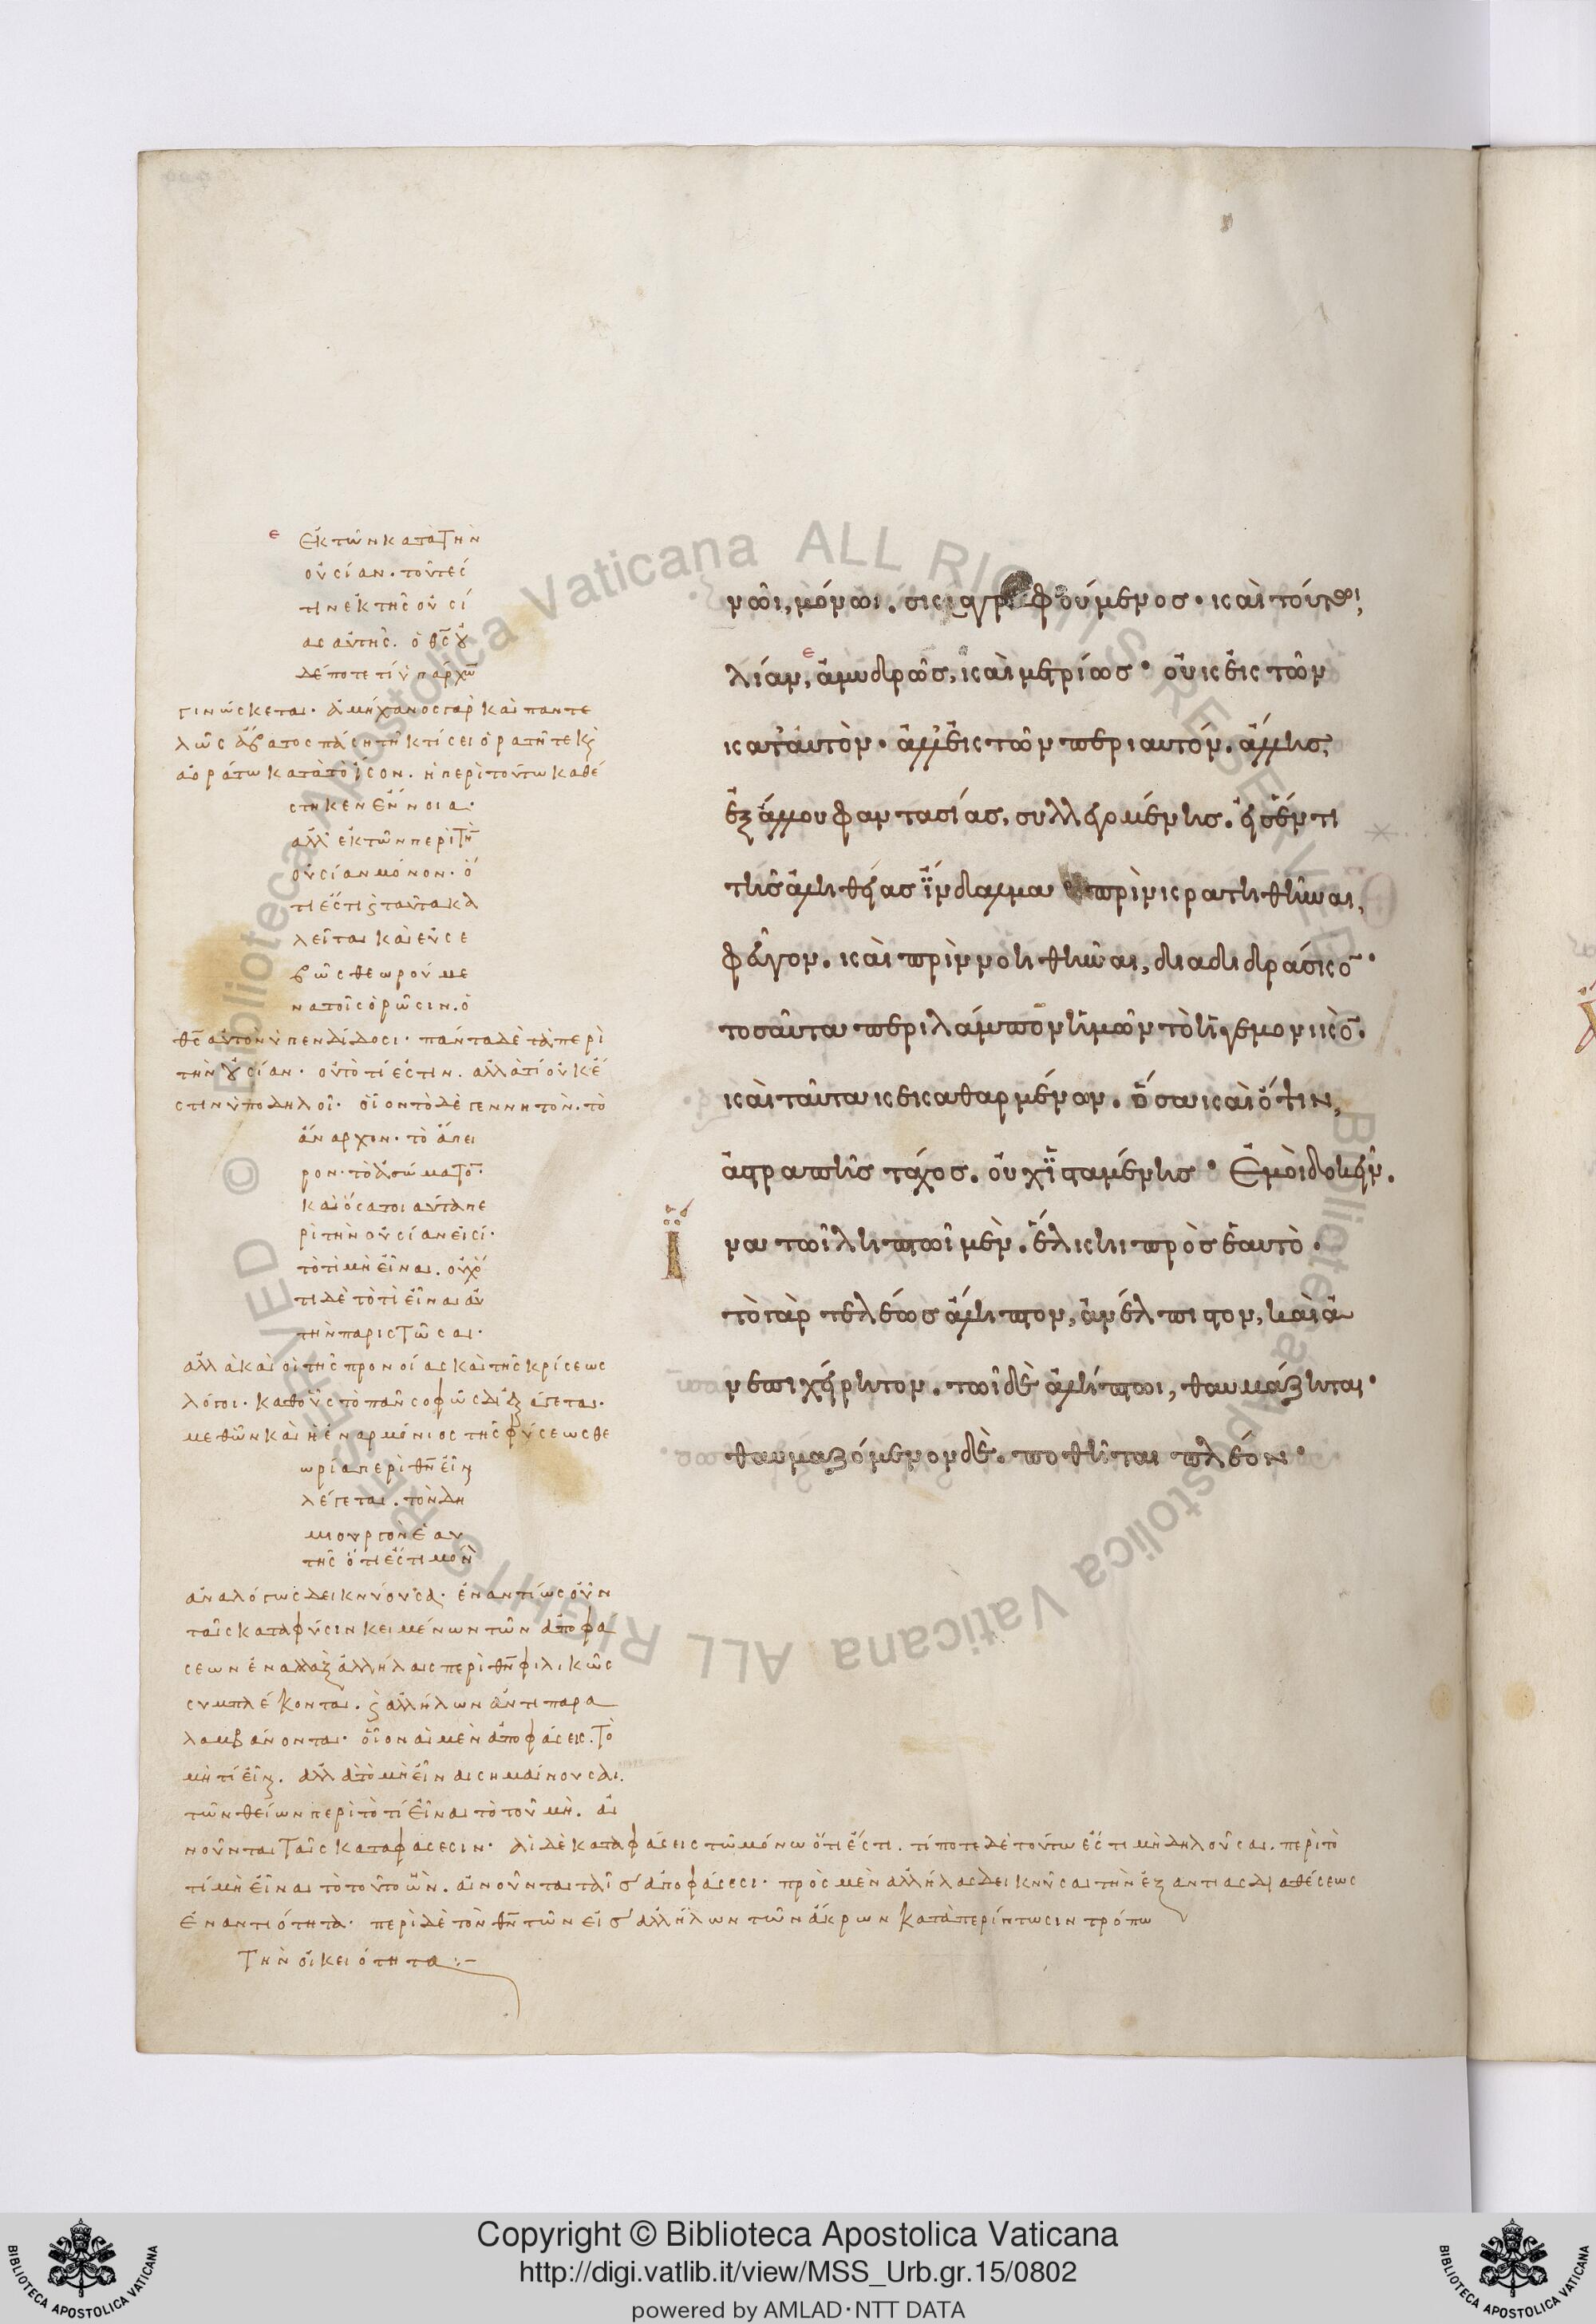 ε
ἐκ τῶν κατὰ τὴν
οὐσίαν· τουτέσ
τιν ἐκ τῆς οὐσί
ας αὐτῆς. ὁ θ̅ς̅ οὐ
δέποτε τί ὑπάρχω̅
γινώσκεται· ἀμήχανος γὰρ καὶ παντε
λῶς ἄβατος πάσῃ τῇ κτίσει ὁρατῆ τε κ̀
ἀοράτω κατὰ τὸ ἴσον. ἡ περὶ τούτω καθέ
στηκεν ἔννοια·
ἀλλ' ἐκ τῶν περὶ τὴ̅
οὐσίαν μόνον· ὅ
τι ἔστι ϛ ταῦτα κα
λεῖται καὶ εὐσε
βῶς θεωρούμε
να τοῖς ὁρῶσιν. ὁ
θ̅ς̅ αὐτὸν ὑπενδίδοσι· πάντα δὲ τὰ περὶ
τὴν οὐσίαν· οὐ τὸ τί ἐστιν. ἀλλὰ τί οὐκ ἔ
στιν ὑποδηλοῖ· οἷον τὸ δὲ γεννητὸν. τὸ
ἄναρχον· τὸ ἄπει
ρον· τὸ ἀσώματο̅·
καὶ ὅσα τοιαῦτα πε
ρὶ τὴν οὐσίαν εἰσί·
τὸ τί μὴ εἶναι. οὐχ ὅ
τι δὲ τὸ τὶ εἶναι αὐ
τὴν παριστῶσαι·
ἀλλὰ καὶ οἱ τῆς προνοίας καὶ τῆς κρίσεως
λόγοι· καθ' οὓς τὸ πᾶν σοφῶς διεξάγεται·
μεθ' ὧν καὶ ἡ ἐναρμόνιος τῆς φύσεως θε
ωρία περὶ θ̅ν̅ εἶν
λέγεται. τὸν δη
μιουργὸν ἑαυ
τῆς ὅτι ἐστι μόν
ἀναλόγως δεικνύουσα· ἐναντίως οὖν
ταῖς καταφύσιν κειμένων τῶν ἀποφά
σεων ἐναλλὰξ ἀλλήλαις περὶ θ̅ν̅ φιλικῶς
συμπλέκονται. ϛ ἀλλήλων ἀντιπαρα
λαμβάνονται· οἷον αἱ μὲν ἀποφάσεις. τὸ
μὴ τί εἶν. ἀλλὰ τὸ μὴ εἶναι σημαίνουσαι.
τῶν θείων περὶ τὸ τί εἶναι τὸ τοῦ μὴ. αἱ
νοῦνται ταῖς καταφάσεσιν· αἱ δὲ καταφάσεις τῶ μόνω ὅτι ἔστι. τί ποτε δὲ τούτω ἔστι μὴ δηλοῦσαι. περὶ τὸ
τί μὴ εἶναι τὸ τοῦτο ὢν. αἱνοῦνται ταῖς ἀποφάσεσι· πρὸς μὲν ἀλλήλας δεικνῦσαι τὴν ἐξ ἀντιας διαθέσεως
ἐναντιότητα· περὶ δὲ τὸν θ̅ν̅ τῶν εἰς ἀλλήλων τῶν ἄκρων κατὰ περίπτωσιν τρόπω
τὴν οἰκειότητα :-
νῶι, μόνωι. σκιαγραφούμενος· καὶ τούτωι,
ε
λίαν, ἀμυδρῶς, καὶ μετρίως· οὐκ ἐκ τῶν
κατ' αὐτὸν· ἀλλ' ἐκ τῶν περι αυτόν. ἄλλης,
ἐξ ἄλλου φαντασίας, συλλεγομένης. εἰς ἕν τι
τῆς ἀληθείας ἴνδαλμα πρὶν κρατηθῆναι,
φεῦγον. καὶ πρὶν νοηθῆναι, διαδιδράσκο̅·
τοσαῦτα περιλάμπον ἡμῶν τὸ ἡγεμονικὸ̅.
καὶ ταῦτα κεκαθαρμένον. ὅσα καὶ ὄψιν,
ἀστραπῆς τάχος. οὐχ ἱσταμένης· Ἐμοὶ δοκεῖν.
ἵνα τῶι ληπτῶι μὲν. ἕλκηι πρὸς ἑαυτὸ·
τὸ γὰρ τελέως ἄληπτον, ἀνέλπιστον, καὶ ἀ
νεπιχείρητον. τῶι δὲ ἀλήπτωι, θαυμάζηται·
θαυμαζόμενον δὲ. ποθῆται πλέον·
Copyright © Biblioteca Apostolica Vaticana
http://digi.vatlib.it/view/MSS_Urb.gr.15/0802
powered by AMLAD·NTT DATA